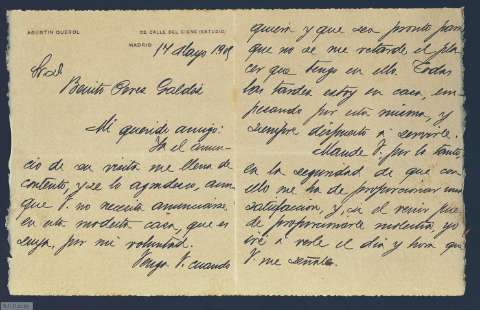 AGUSTIN QUEROL
22 CALLE DEL CISNE (ESTUDIO)
MADRID
14 Mayo 19
Sr. D.
Benito Perez Galdós
Mi querido amigo:
Ya el anun-
cio de su visita me llena de
contento, y se lo agradezco, aun
que V. no necesita anunciarse
en esta modesta casa, que es
suya, por mi voluntad.
Venga V. cuando
quiera y que sea pronto para
que no se me retarde el pla
cer que tengo en ello. Todas
las tardes estoy en casa, em-
pezando por esta misma, y
siempre dispuesto a servirle.
Mande V. por lo tanto,
en la seguridad de que con
ello me ha de proporcionar una
satisfacción, y, si el venir pue
de proporcionarle molestia, yo
iré a verle el día y hora que
V. me señale.